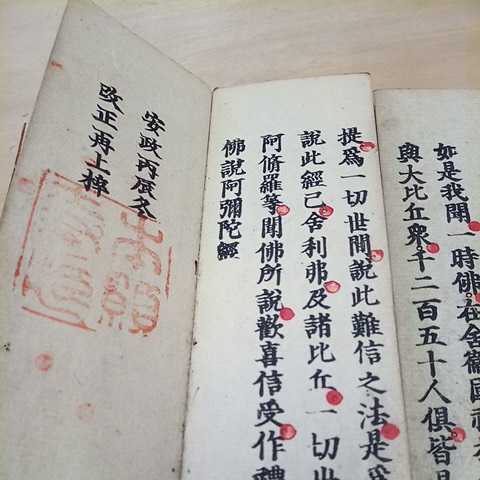 如是我聞一時佛在舍衞國祇
與大比丘衆千二百五十人俱皆是
提爲一切世間說此難信之法是爲
說此經已舍利弗及諸比丘一切世
阿脩羅等聞佛所說歡喜信受作禮
佛說阿彌陀經
安政丙辰冬
改正再上梓